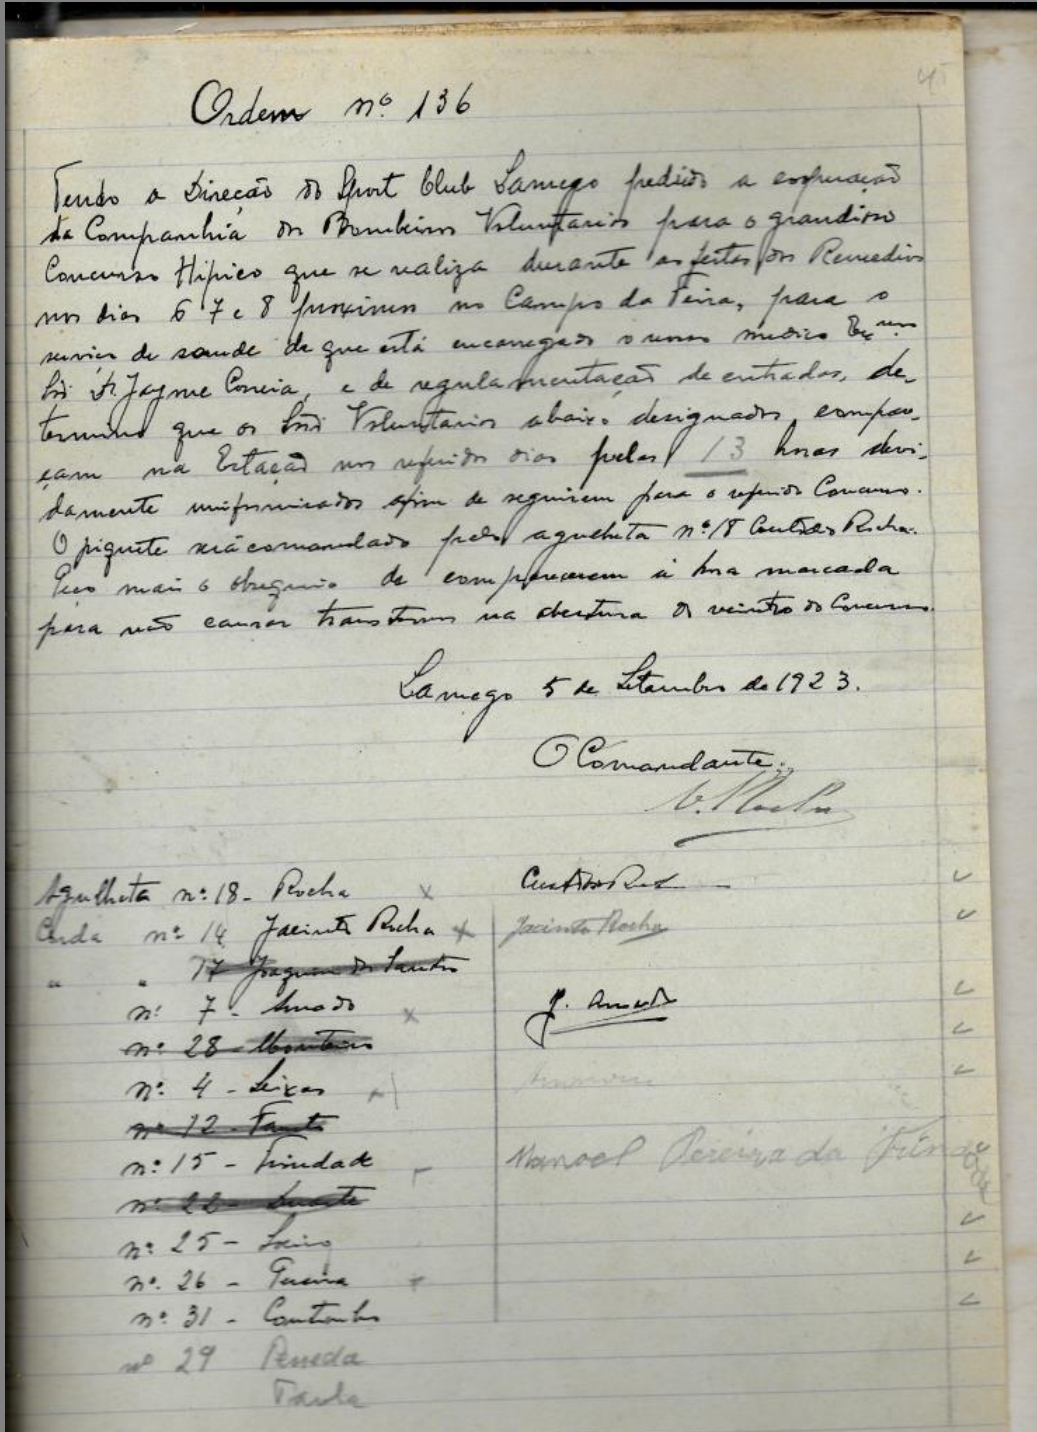 45
Ordem nº 136
Tendo a Direção do Sport Club Lamego pedido a cooperação
da Companhia dos Bombeiros Voluntarios para o grandioso
Concurso Hipico que se realiza durante as festas dos Remedios
nos dias 6 7 e 8 proximos no Campo da Feira, para o
serviço de saude de que está encarregado o nosso medico Exmo
Snr Dr Jayme Correia, e de regulamentação de entradas, de-
termino que os Snrs Voluntarios abaixo designados, compar-
eçam na Estação nos referidos dias pelas 13 horas devi-
damente uniformisados afim de seguirem para o referido Concurso.
O piquete será comandado pelo agulheta nº 18 Custodio Rocha.
Peço mais o obsequio de comparecerem á hora marcada
para não causar transtornos na abertura do recinto do Concurso.
Lamego 5 de Setembro de 1923.
O Comandante:
Agulheta nº 18 - Rocha x
Corda nº 14 Jacinto Rocha x Jacinto Rocha
" " 17 Joaquim dos Santos
nº 7 - Amado x J. Amado
nº 28 - Monteiro
nº 4 - Seixas
nº 12 -
nº 15 - Trindade Manoel Pereira da Trindade
nº 22 - Duarte
nº 25 -
nº 26 - Pereira
nº 31 - Coutinho
nº 29 Peneda